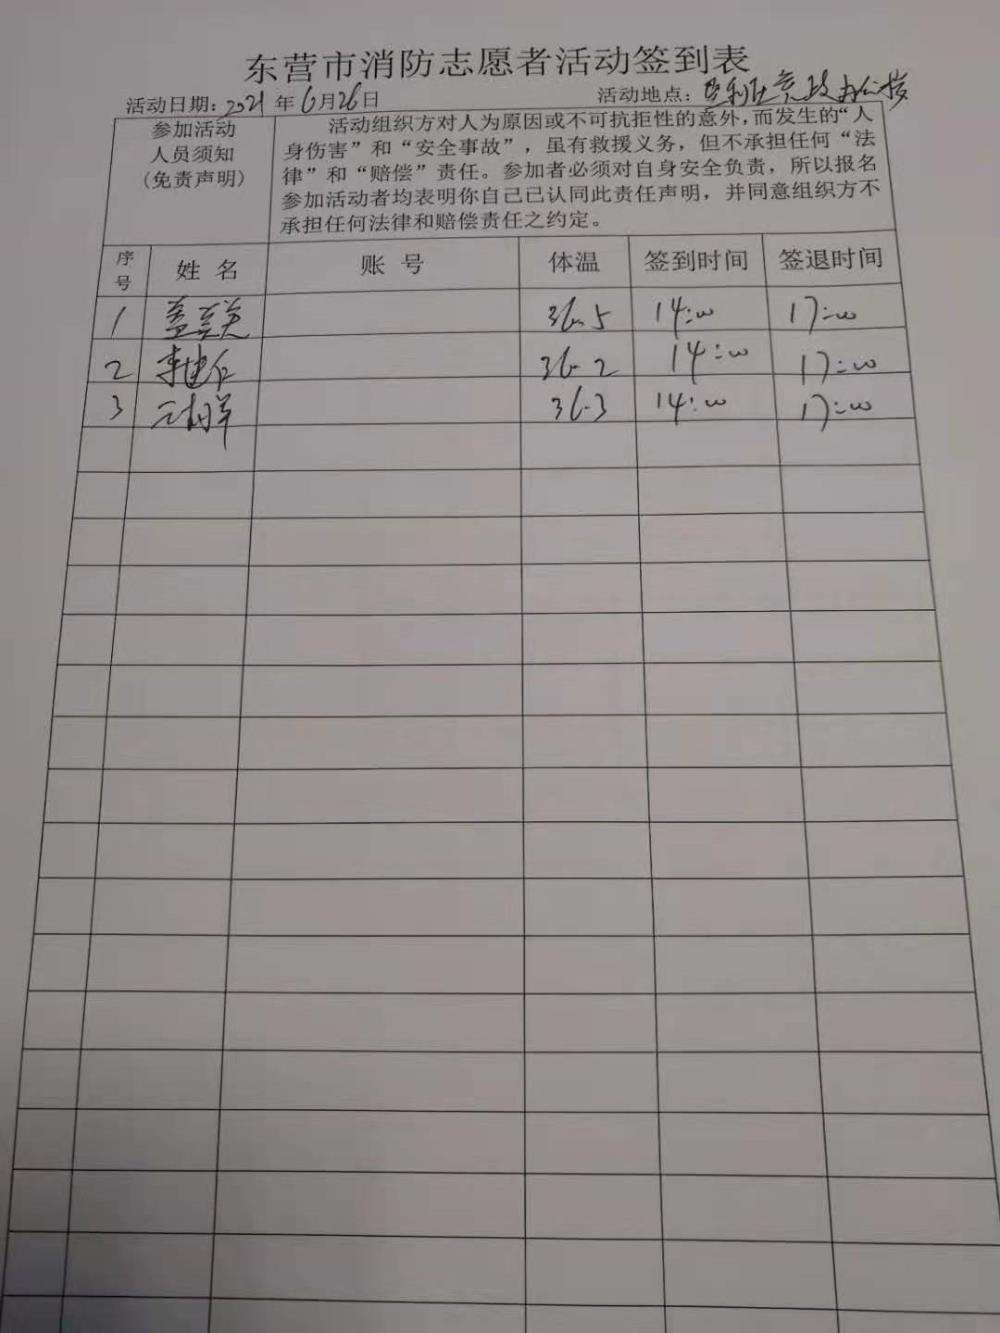 东营市消防志愿者活动签到表
活动日期：2021年6月26日 活动地点：
参加活动
人员须知
(免责声明)
活动组织方对人为原因或不可抗拒性的意外，而发生的“人
身伤害”和“安全事故”，虽有救援义务，但不承担任何“法
律”和“赔偿”责任。参加者必须对自身安全负责，所以报名
参加活动者均表明你自己已认同此责任声明，并同意组织方不
承担任何法律和赔偿责任之约定。
序号 姓名 账号 体温 签到时间 签退时间
1 36.5 14:00 17:00
2 36.2 14:00 17:00
3 36.3 14:00 17:00